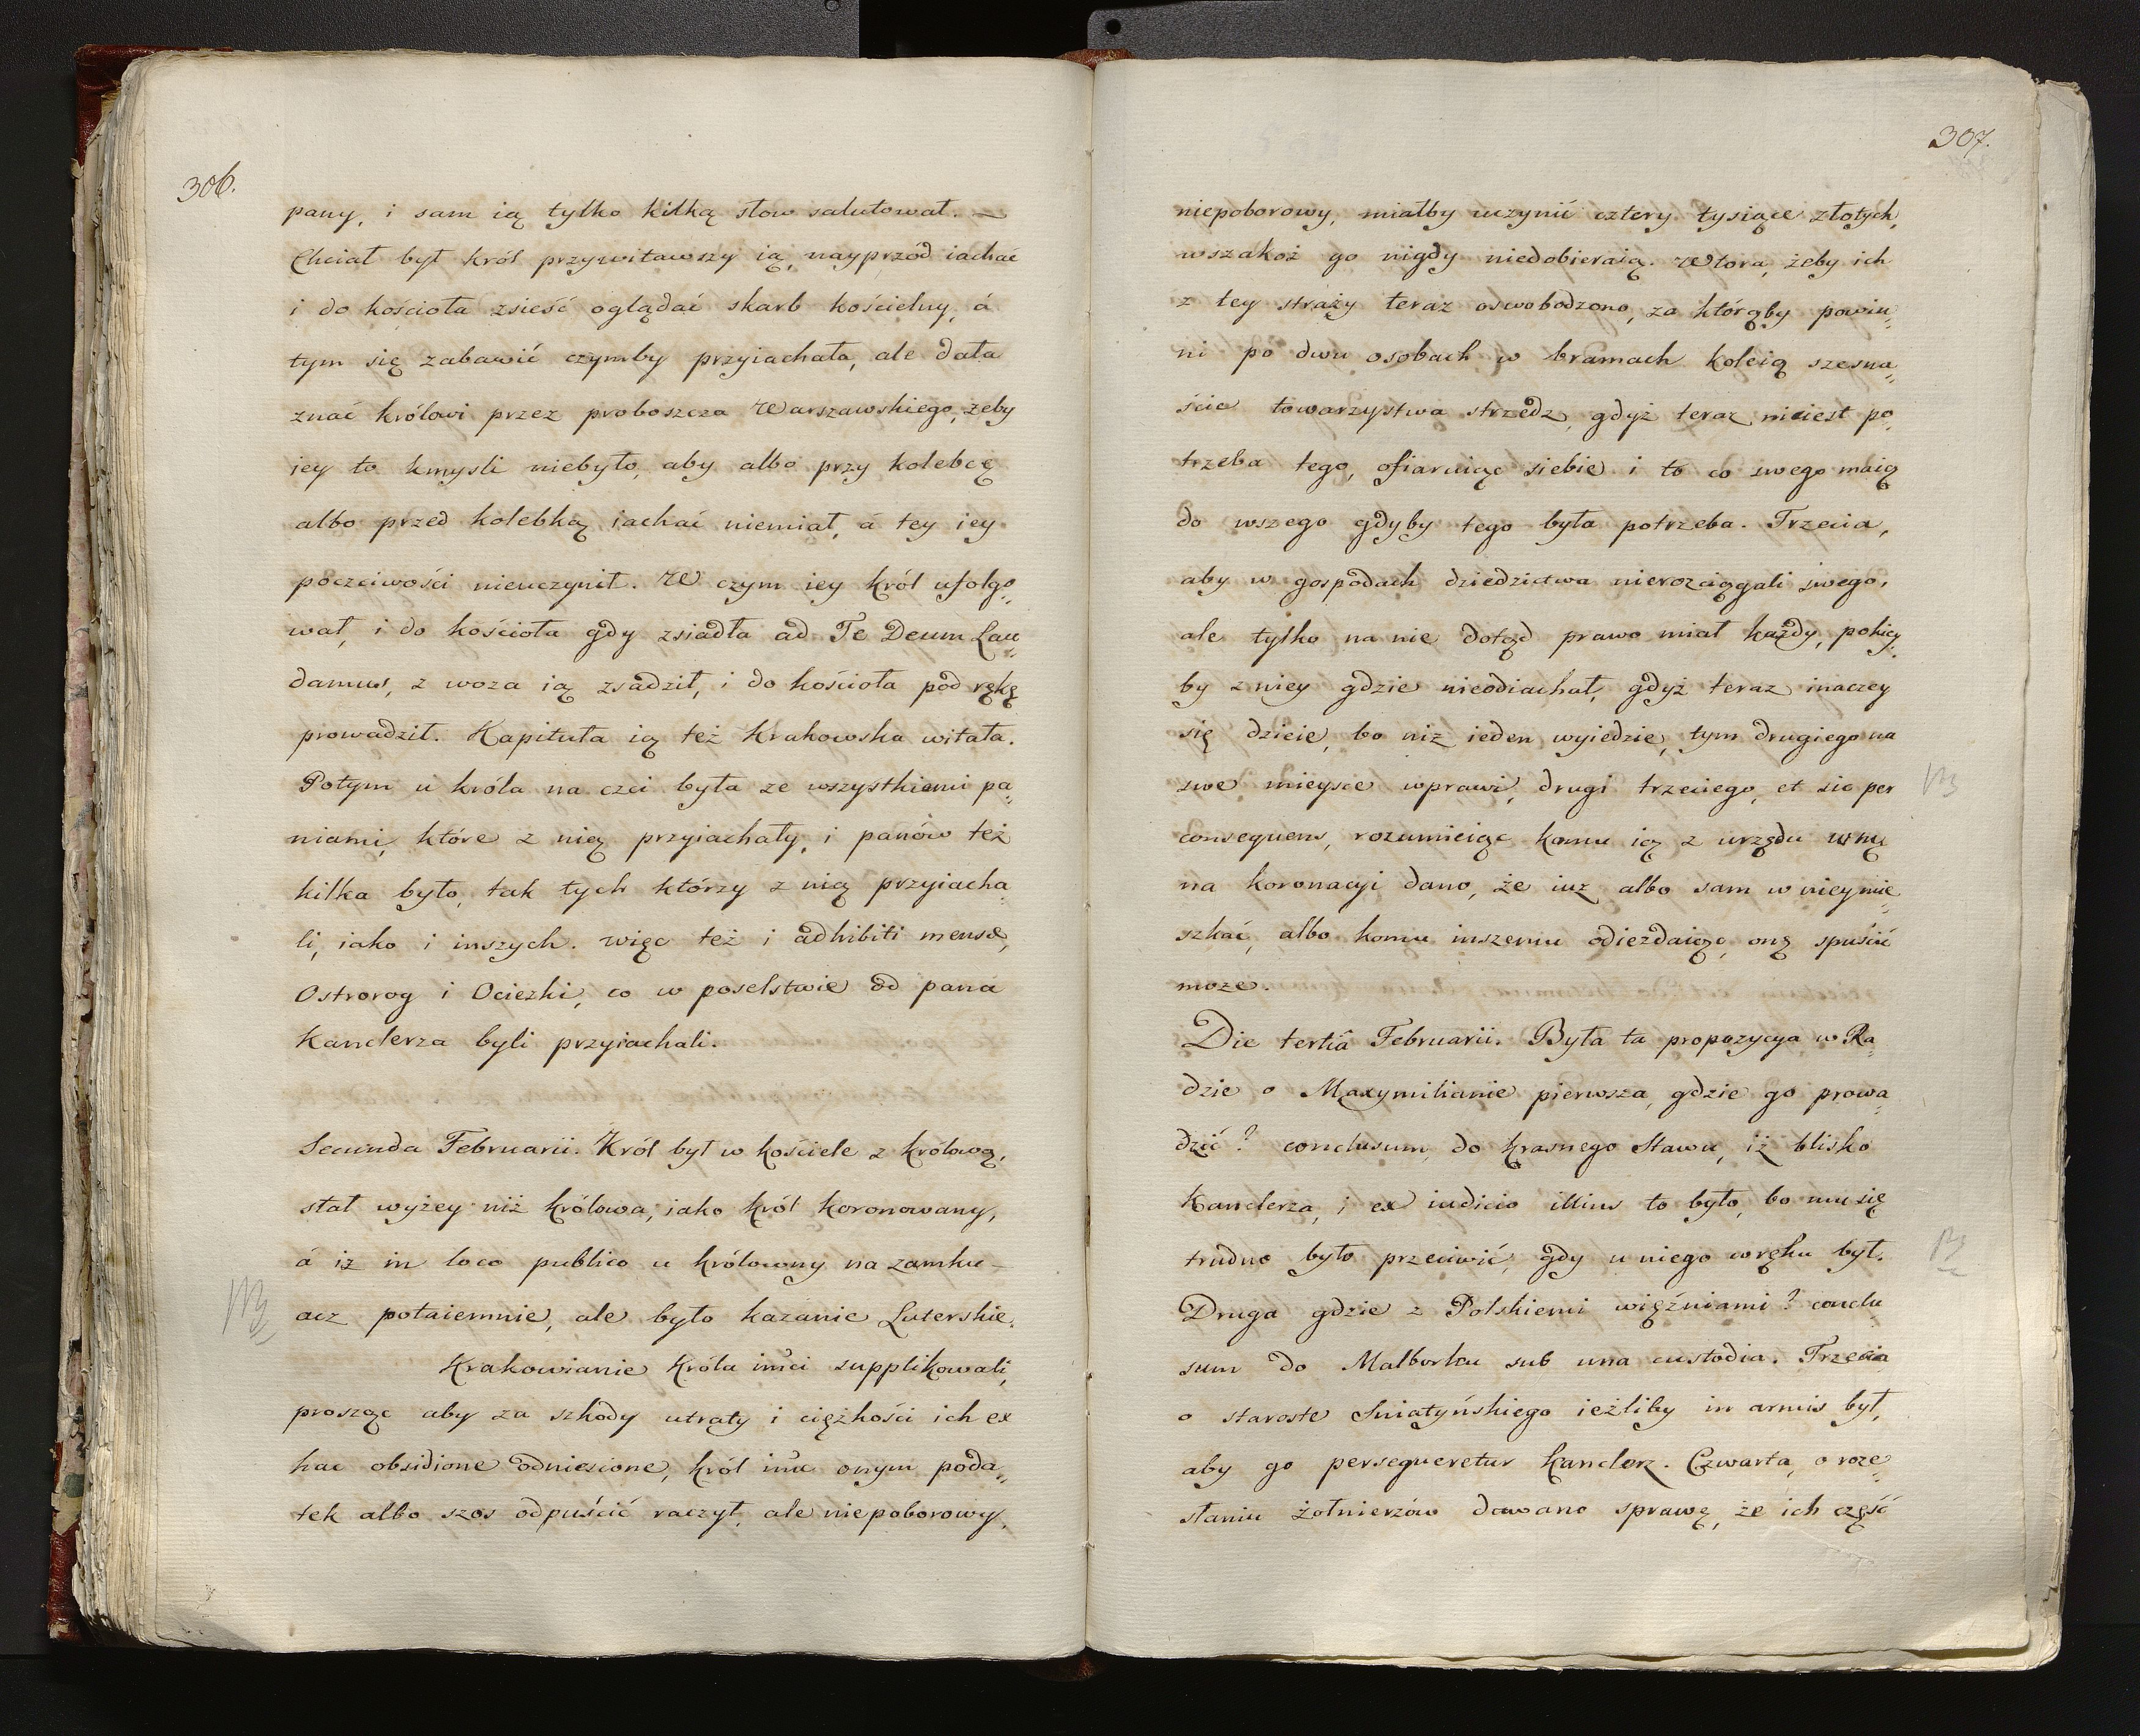 306.
pany, i sam ią tylko kilką słow salutował. —
Chciał był król przywitawszy ią, nayprzód iachać
i do kościoła zsieść oglądać skarb kościelny, á
tym się zabawić czymby przyiachała, ale dała
znać królowi przez proboszcza Warszawskiego, żeby
iey to kmysli niebyło, aby albo przy kolebcę
albo przed kolebką iachać niemiał, á tey iey
poczciwości nieuczynił. W czym iey król ufolgo„
wał, i do kościoła gdy zsiadła ad Te Deum Lau„
damus, z woza ią zsadził, i do kościoła pod rękę
prowadził. Kapituła ią też Krakowska witała.
Potym u króla na czci była ze wszystkiemi pa„
niami, które z nią przyiachały, i panów też
kilka było, tak tych którzy z nią przyiacha„
li, iako i inszych. więc też i adhibiti mensæ,
Ostrorog i Ocieski, co w poselstwie od pana
Kanclerza byli przyiachali.
Secunda Februarii. Król był w kościele z królową,
stał wyżey niż królowa, iako król koronowany,
á iż in loco publico u królowny na zamku –
acz potaiemnie, ale było kazanie Luterskie.
Krakowianie króla imci supplikowali,
prosząc aby za szkody utraty i ciężkości ich ex
hac obsidione odniesione, król imć onym poda„
tek albo szos odpuścić raczył, ale niepoborowy,
307.
niepoborowy, miałby uczynić cztery tysiące złotych,
wszakoż go nigdy niedobieraią. Wtora, żeby ich
z tey straży teraz oswobodzono, za którąby powin„
ni po dwu osobach w bramach koleią szesna„
ście towarzystwa strzedz, gdyż teraz nieiest po„
trzeba tego, ofiaruiąc siebie i to co swego maią
do wszego gdyby tego była potrzeba. Trzecia,
aby w gospodach dziedzictwa nierozciągali swego,
ale tylko na nie dotąd prawo miał każdy, pokię„
by z niey gdzie nieodiachał, gdyż teraz inaczey
się dzieie, bo niż ieden wyiedzie, tym drugiego na
swe mieysce wprawi, drugi trzeciego, et sic per
consequens, rozumieiąc komu ią z urzędu wnę
na koronacyi dano, że iuż albo sam w niey mie„
szkać, albo komu inszemu odieżdaiąc, onę spuścić
może.
Die tertiâ Februarii. Była ta propozycya w Ra„
dzie o Maxymilianie pierwsza, gdzie go prowa„
dzić? conclusum, do Krasnego Stawu, iż blisko
Kanclerza, i ex iudicio illius to było, bo mu się
trudno było przeciwić, gdy u niego w ręku był.
Druga gdzie z Polskiemi więźniami? conclu
sum do Malborku sub una custodia. Trzecia
o staroste Sniatyńskiego ieżliby in armis był,
aby go persequeretur Kanclerz. Czwarta, o roze„
słaniu żołnierzów dawano sprawę, że ich część